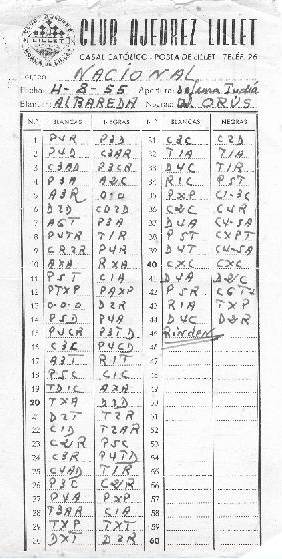 CLUB AJEDREZ LILLET
CASAL CATÓLICO - POBLA DE LILLET TELÉF. 26
NACIONAL
Fecha: 4-8-55 Apertura: Defensa India
Blancas: ALBAREDA Negras: ORUS
N.º BLANCAS NEGRAS N.º BLANCAS NEGRAS
1 P4R P3D 31 C3C C2D
2 P4D C3AR 32 T1A T1A
3 C3AD P3CR 33 D4C T1R
4 P3A A2C 34 R1C P5T
5 A3R O-O 35 PXP C1-3C
6 D2D CD2D 36 C2C C4R
7 A6T P3A 37 D4A C4-5A
8 P4TR T1R 38 P5T CXPT
9 CR2R P4R 39 D4T C4-5A
10 AXA RXA 40 CXC CXC
11 P5T C1A 41 D4A
12 PTXP PAXP 42 P5R C6T+
13 O-O-O D2R 43 R1A TXP
14 P5D P4A 44 D4C D2R
15 P4CR P3TD 45 Rinden
16 C3C P4CD 46
17 A3T R1T 47
18 P5C C1C 48
19 TD1C AXA 49
20 TXA 50
21 D2T T2R 51
22 C1D T2AR 52
23 C2R P5C 53
24 C3R P4TD 54
25 C4AD T1R 55
26 P3C 56
27 P4A PXP 57
28 T3AA C1A 58
29 TXP TXT 59
30 DXT D2R 60